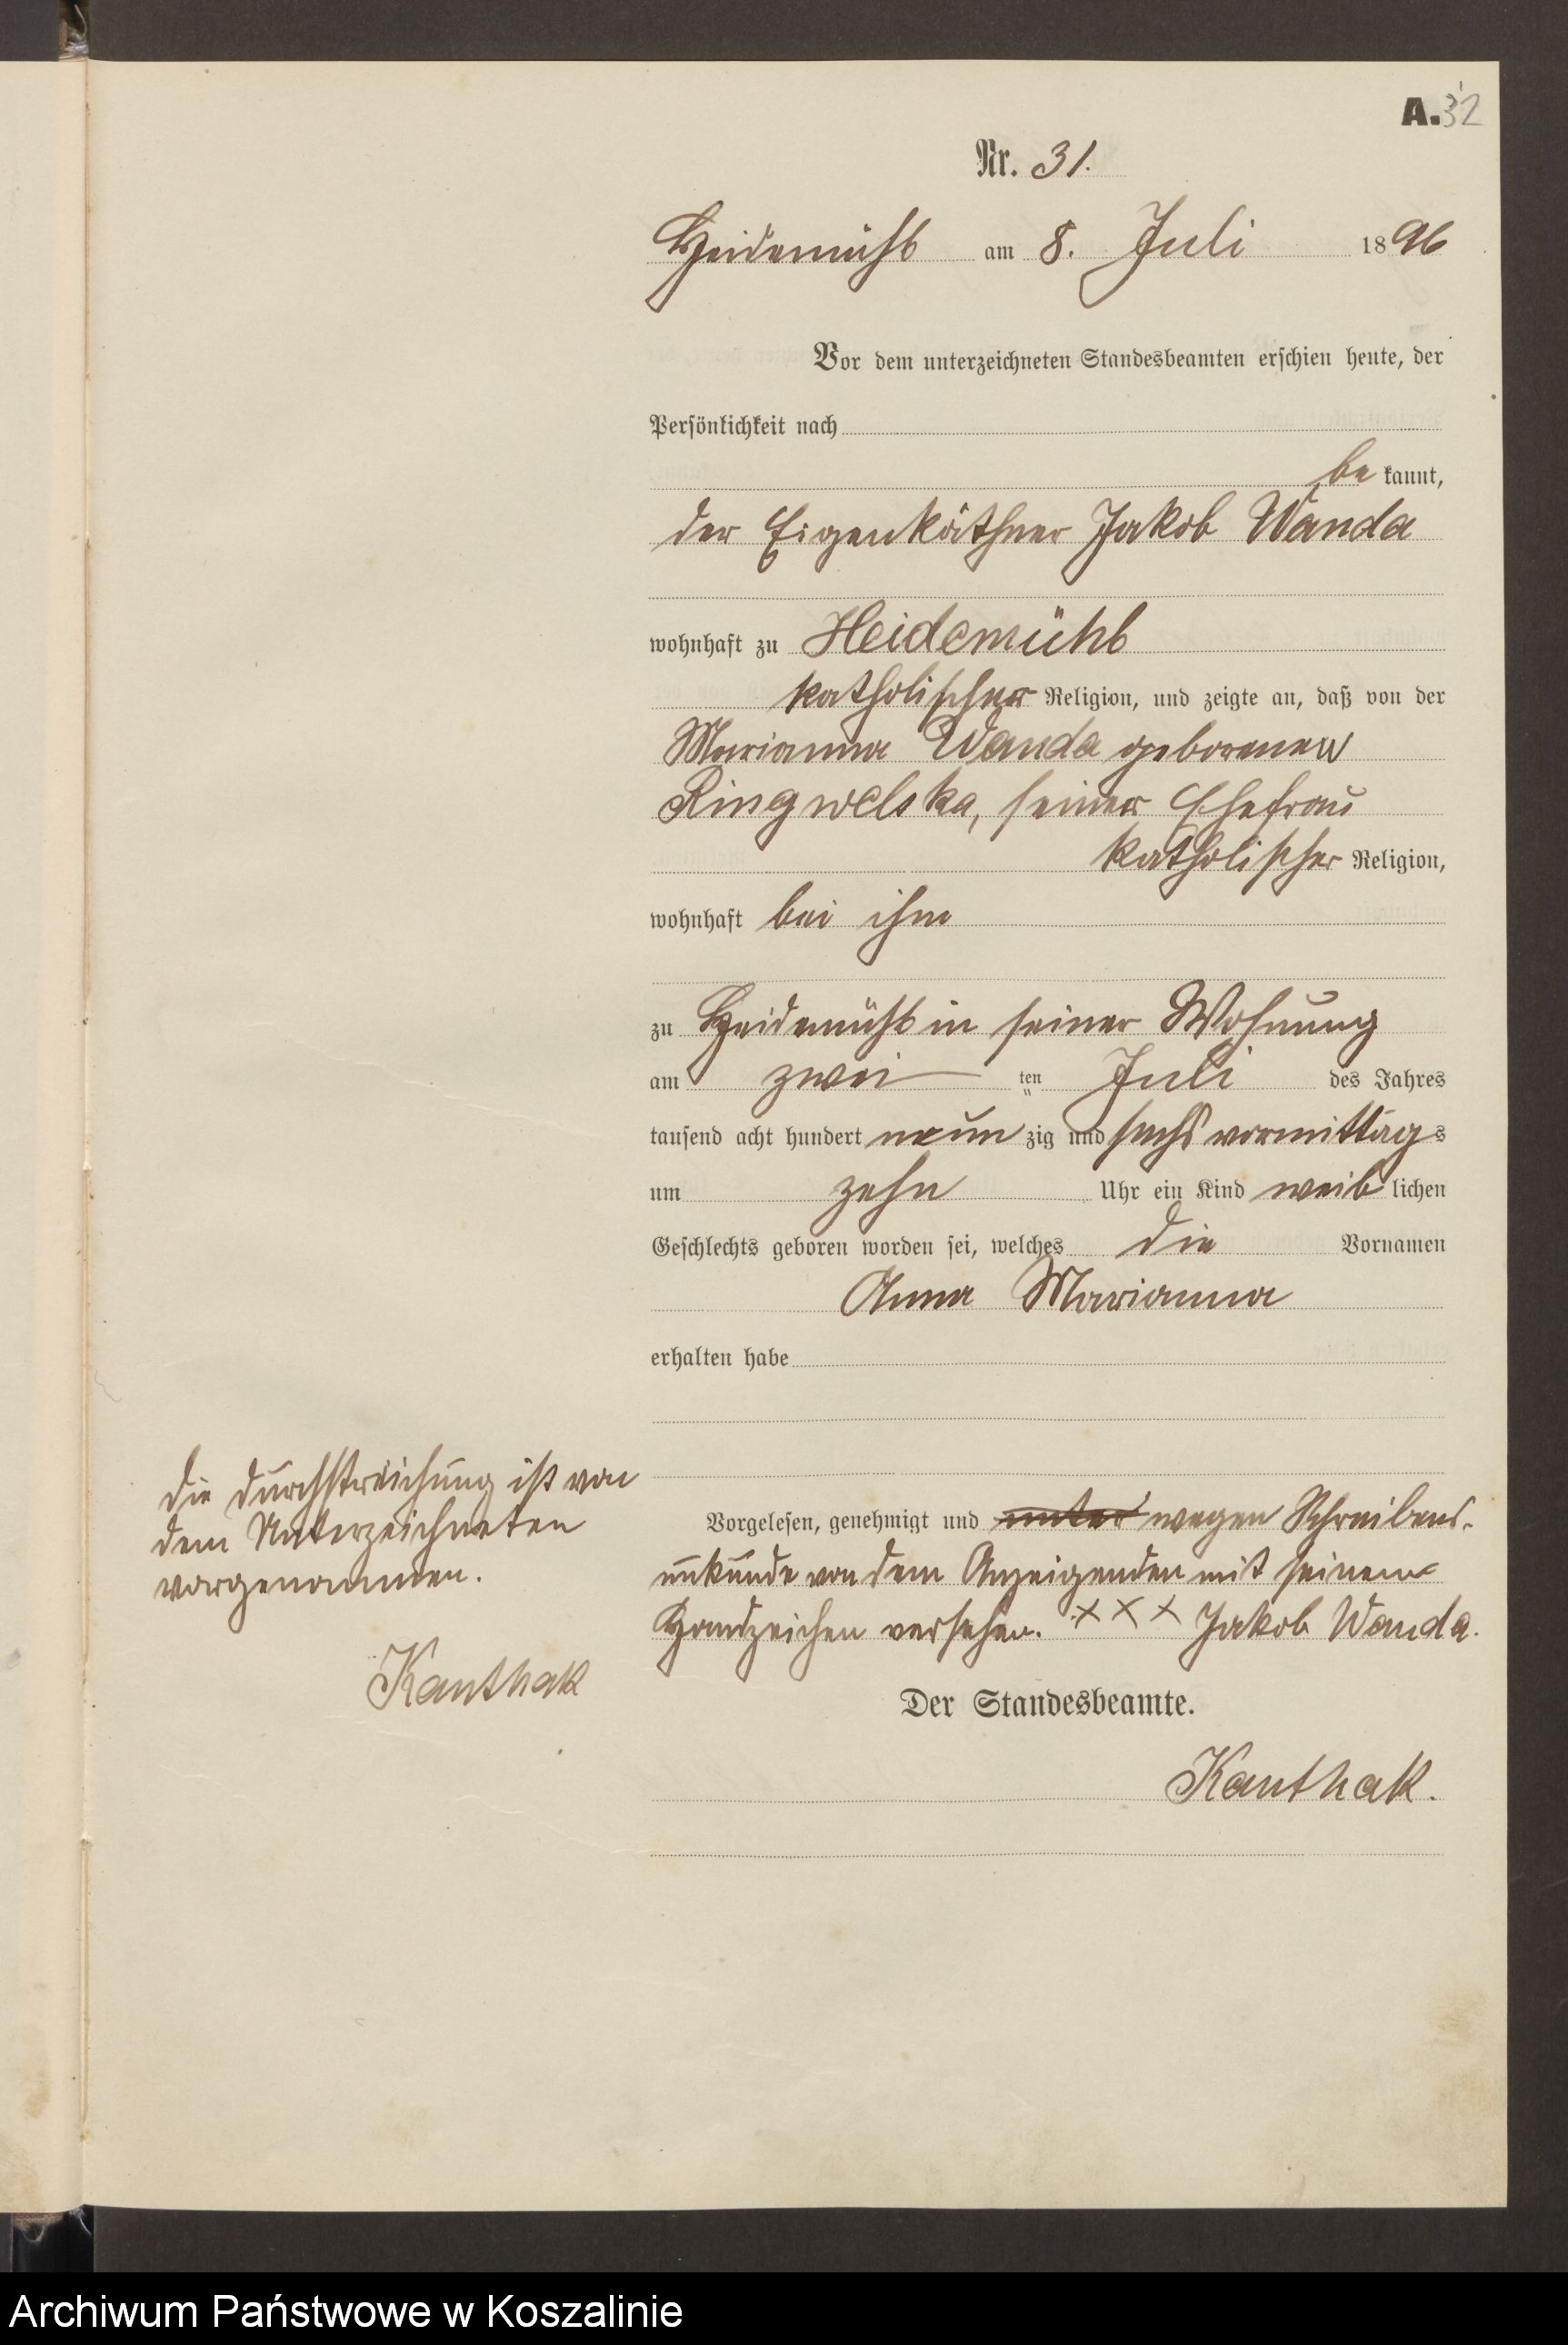 A. 32
Nr. 31.
Heidemühl am 8. Juli 1896
Vor dem unterzeichneten Standesbeamten erschien heute, der
Persönlichkeit nach
be kannt,
der Eigenkäthner Jakob Wanda
wohnhaft zu Heidemühl
katholischer Religion, und zeigte an, daß von der
Marianna Wanda geborenen
Ringwelska, seiner Ehefrau
katholischer Religion,
wohnhaft bei ihm
zu Heidemühl in seiner Wohnung
am zwei ten Juli des Jahres
tausend acht hundert neun zig und sechs vormittags
um zehn Uhr ein Kind weib lichen
Geschlechts geboren worden sei, welches die Vornamen
Anna Marianna
erhalten habe
Vorgelesen, genehmigt und unter wegen Schreibens-
unkunde von dem Anzeigenden mit seinem
Handzeichen versehen. xxx Jakob Wanda.
Die Durchstreichung ist von
dem Unterzeichneten
vorgenommen.
Kanthak
Der Standesbeamte.
Kanthak.
Archiwum Państwowe w Koszalinie